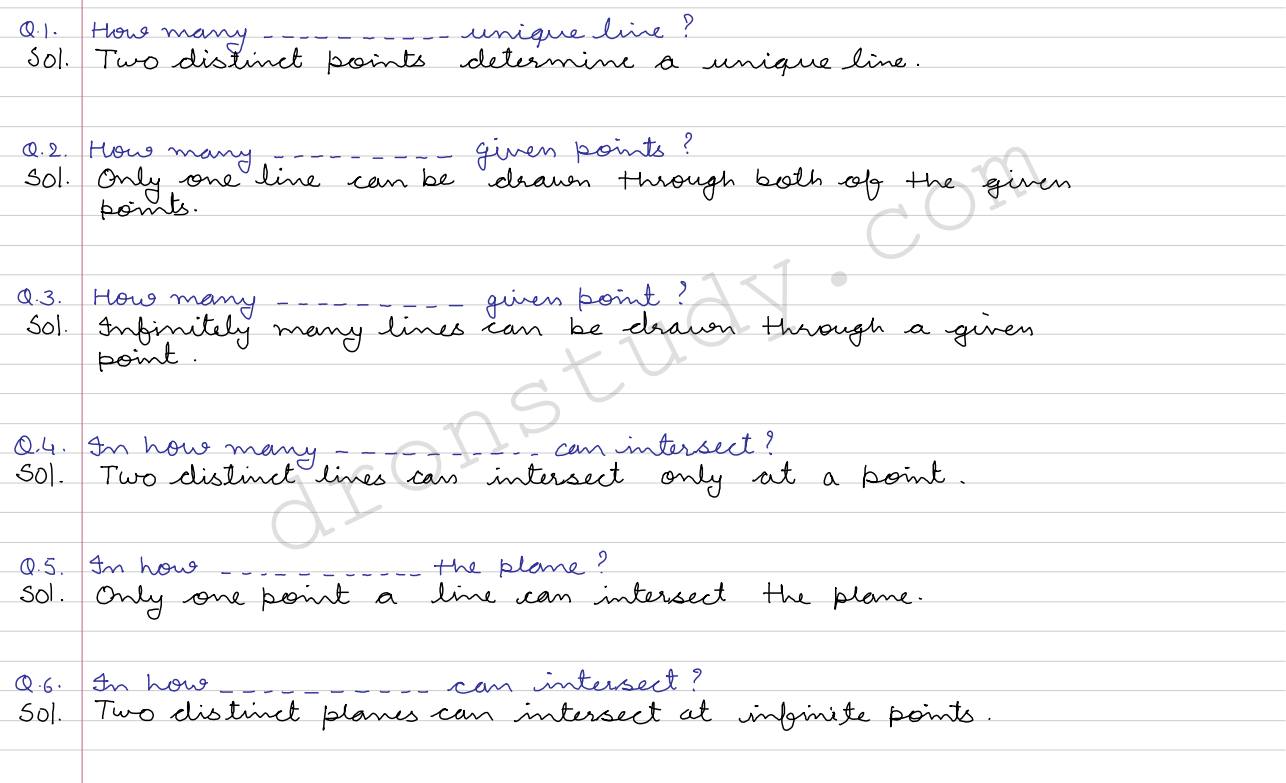 Q.1. How many ---------- unique line ?
Sol. Two distinct points determine a unique line.
Q.2. How many --------- given points ?
Sol. Only one line can be drawn through both of the given
points.
Q.3. How many --------- given point ?
Sol. Infinitely many lines can be drawn through a given
point.
Q.4. In how many ---------- can intersect ?
Sol. Two distinct lines can intersect only at a point.
Q.5. In how ----------- the plane ?
Sol. Only one point a line can intersect the plane.
Q.6. In how ---------- can intersect ?
Sol. Two distinct planes can intersect at infinite points.
dronstudy.com